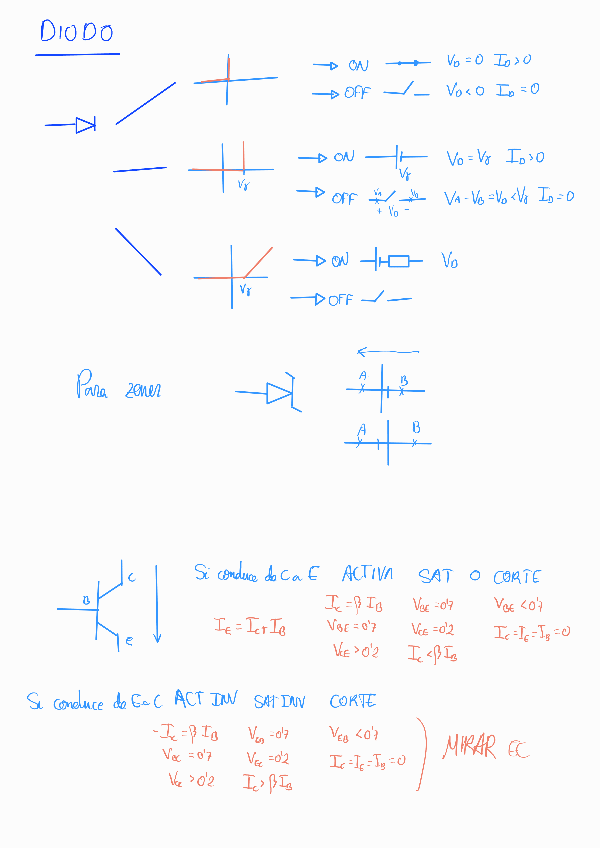 DIODO
ON V_D = 0 I_D > 0
OFF V_D < 0 I_D = 0
V_γ
ON V_γ V_D = V_γ I_D > 0
OFF V_A V_B + V_D - V_A - V_B = V_D < V_γ I_D = 0
V_γ
ON V_D
OFF
Para zener
A B
A B
B C E
Si conduce de C a E ACTIVA SAT O CORTE
I_E = I_C + I_B
I_C = β I_B V_BE = 0'7 V_BE < 0'7
V_BE = 0'7 V_CE = 0'2 I_C = I_E = I_B = 0
V_CE > 0'2 I_C < β I_B
Si conduce de E a C ACT INV SAT INV CORTE
- I_C = β I_B V_EB < 0'7
V_BC = 0'7 V_EC = 0'2 I_C = I_E = I_B = 0
> 0'2 I_C > β I_B
MIRAR EC